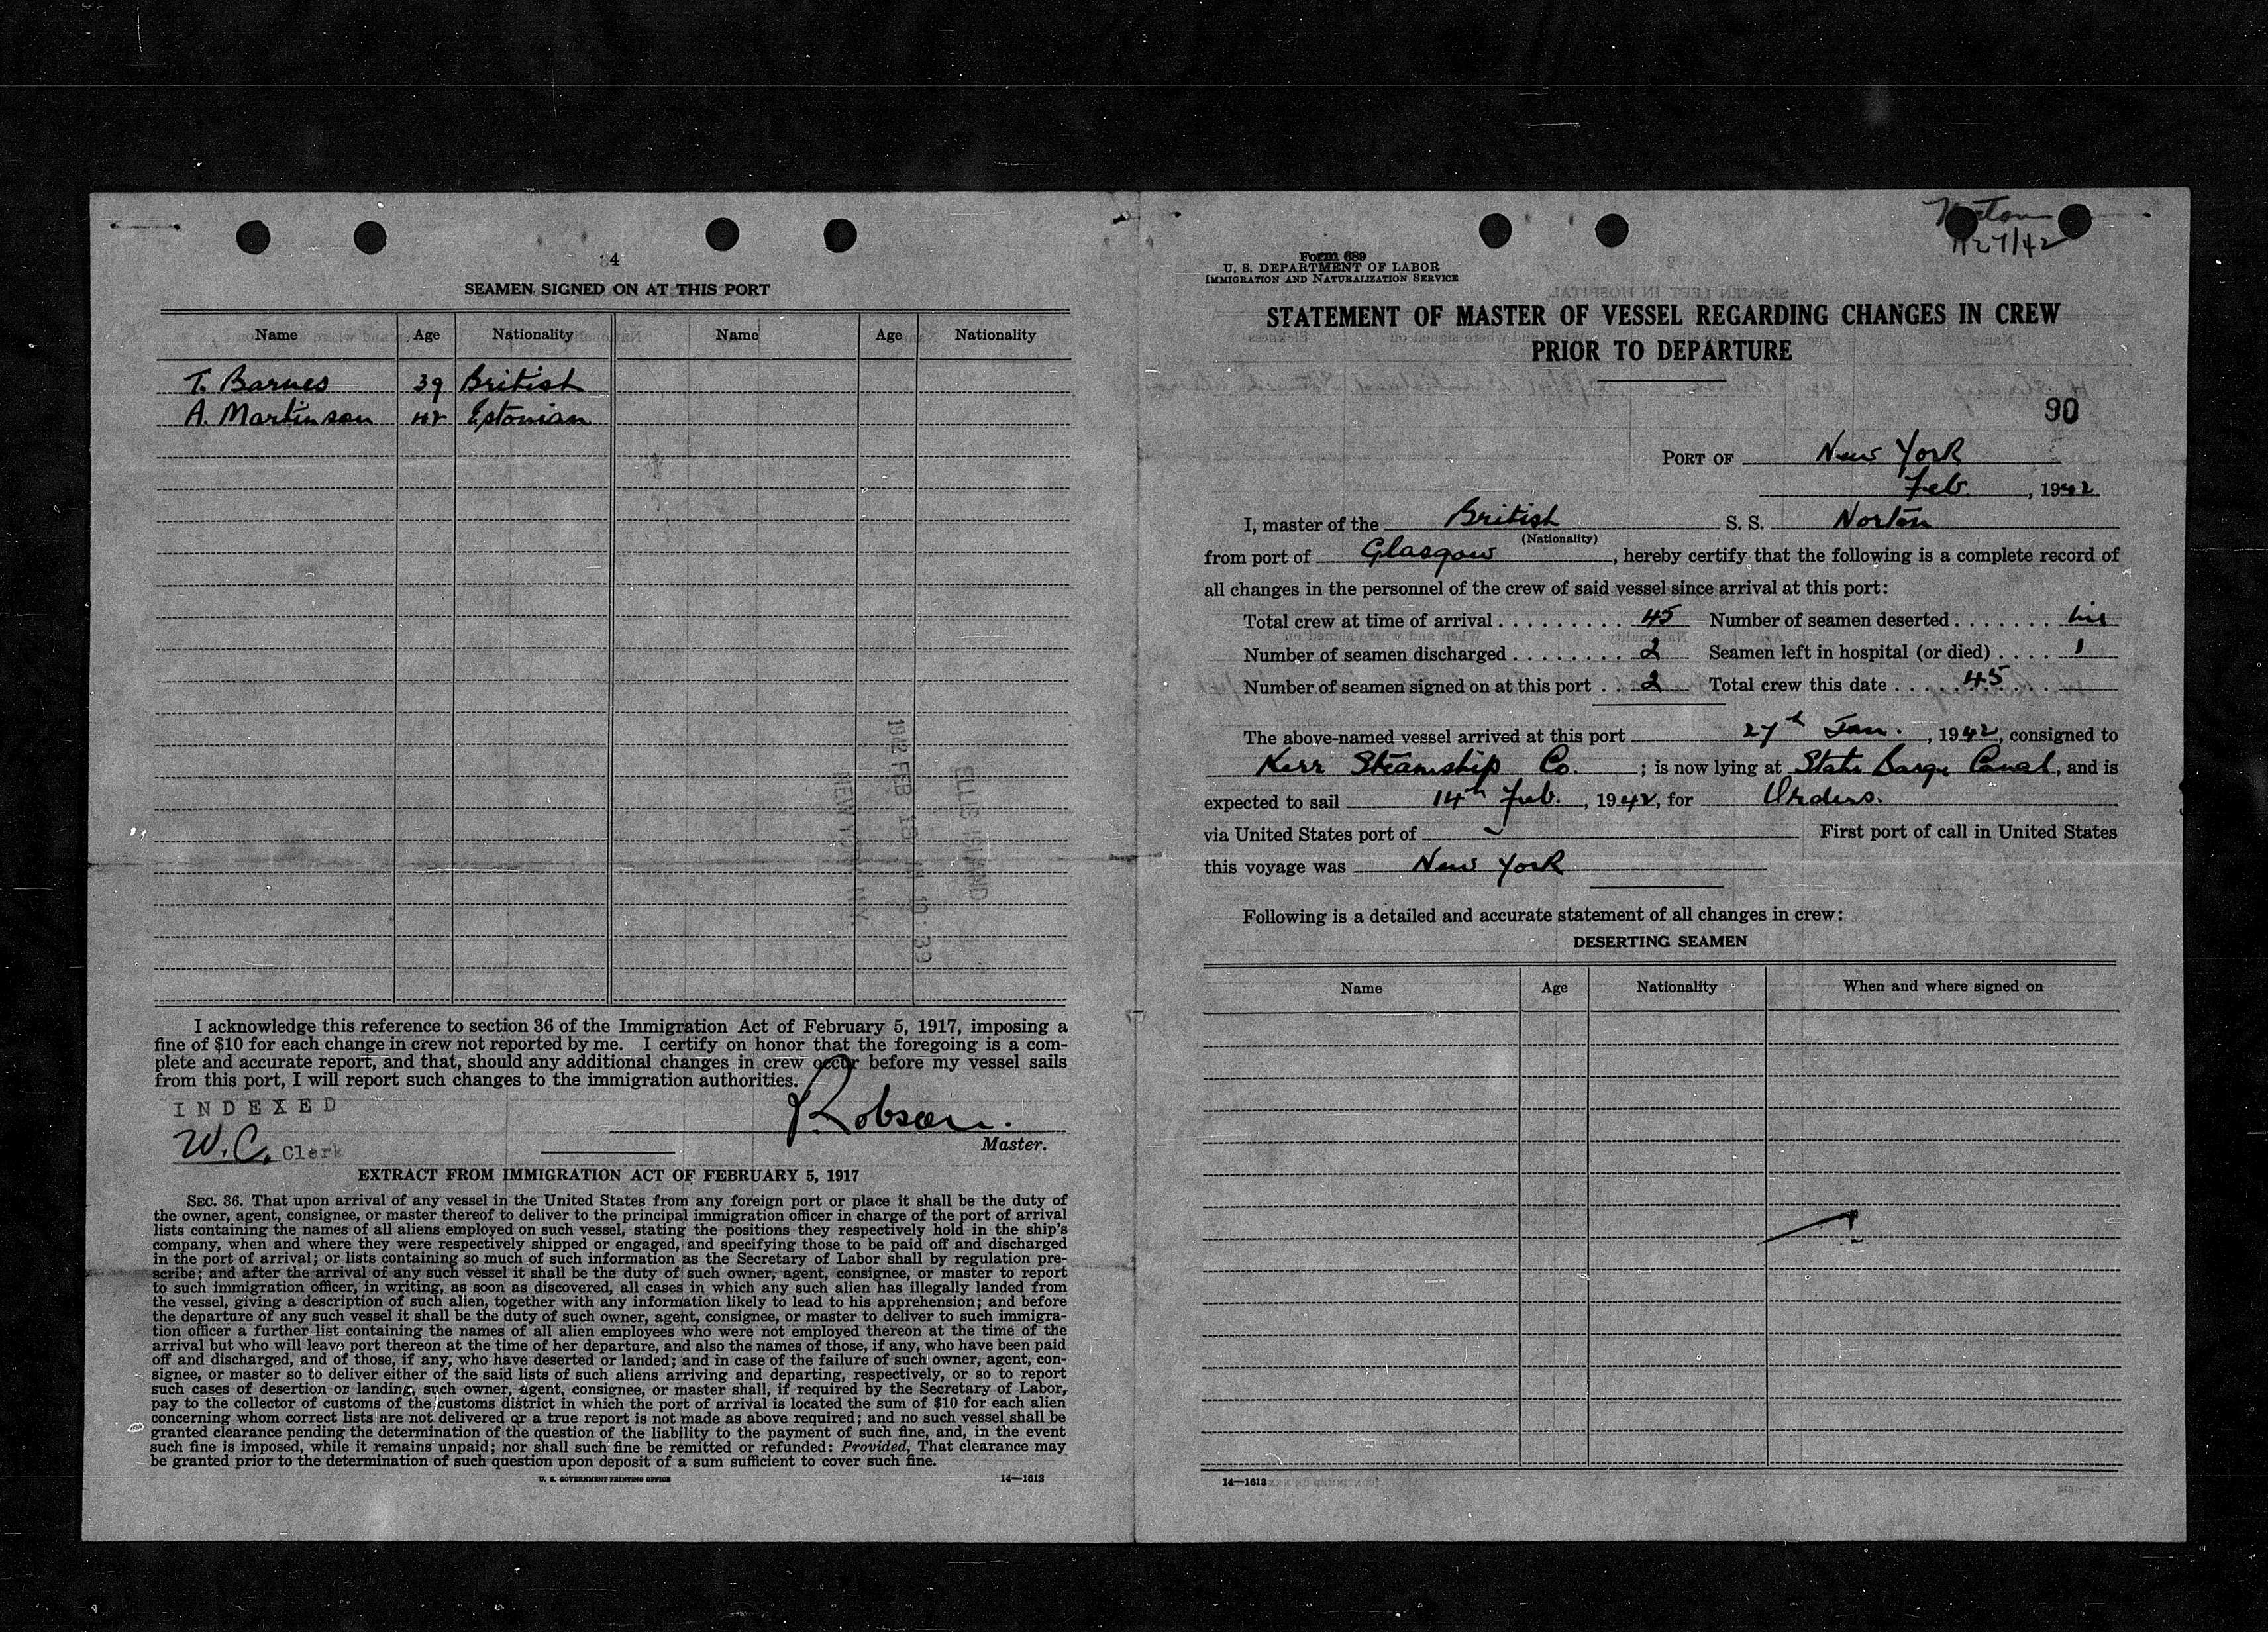 4
SEAMEN SIGNED ON AT THIS PORT
Name Age Nationality Name Age Nationality
T. Barnes 39 British
A. Martinson 42 Estonian
1942 FEB
ELLIS ISLAND
NEW YORK, N.Y.
I acknowledge this reference to section 36 of the Immigration Act of February 5, 1917, imposing a
fine of $10 for each change in crew not reported by me. I certify on honor that the foregoing is a com-
plete and accurate report, and that, should any additional changes in crew occur before my vessel sails
from this port, I will report such changes to the immigration authorities.
INDEXED
Robson.
W.C. Clerk
Master.
EXTRACT FROM IMMIGRATION ACT OF FEBRUARY 5, 1917
SEC. 36. That upon arrival of any vessel in the United States from any foreign port or place it shall be the duty of
the owner, agent, consignee, or master thereof to deliver to the principal immigration officer in charge of the port of arrival
lists containing the names of all aliens employed on such vessel, stating the positions they respectively hold in the ship's
company, when and where they were respectively shipped or engaged, and specifying those to be paid off and discharged
in the port of arrival; or lists containing so much of such information as the Secretary of Labor shall by regulation pre-
scribe; and after the arrival of any such vessel it shall be the duty of such owner, agent, consignee, or master to report
to such immigration officer, in writing, as soon as discovered, all cases in which any such alien has illegally landed from
the vessel, giving a description of such alien, together with any information likely to lead to his apprehension; and before
the departure of any such vessel it shall be the duty of such owner, agent, consignee, or master to deliver to such immigra-
tion officer a further list containing the names of all alien employees who were not employed thereon at the time of the
arrival but who will leave port thereon at the time of her departure, and also the names of those, if any, who have been paid
off and discharged, and of those, if any, who have deserted or landed; and in case of the failure of such owner, agent, con-
signee, or master so to deliver either of the said lists of such aliens arriving and departing, respectively, or so to report
such cases of desertion or landing, such owner, agent, consignee, or master shall, if required by the Secretary of Labor,
pay to the collector of customs of the customs district in which the port of arrival is located the sum of $10 for each alien
concerning whom correct lists are not delivered or a true report is not made as above required; and no such vessel shall be
granted clearance pending the determination of the question of the liability to the payment of such fine, and, in the event
such fine is imposed, while it remains unpaid; nor shall such fine be remitted or refunded: Provided, That clearance may
be granted prior to the determination of such question upon deposit of a sum sufficient to cover such fine.
U. S. GOVERNMENT PRINTING OFFICE 14—1613
Form 689
U. S. DEPARTMENT OF LABOR
IMMIGRATION AND NATURALIZATION SERVICE
STATEMENT OF MASTER OF VESSEL REGARDING CHANGES IN CREW
PRIOR TO DEPARTURE
90
PORT OF New York
Feb. , 1942
I, master of the British S. S. Norton
(Nationality)
from port of Glasgow, hereby certify that the following is a complete record of
all changes in the personnel of the crew of said vessel since arrival at this port:
Total crew at time of arrival . . . . . . . . . 45 Number of seamen deserted . . . . . . . nil
Number of seamen discharged . . . . . . . . 2 Seamen left in hospital (or died) . . . . 1
Number of seamen signed on at this port . . 2 Total crew this date . . . . . 45
The above-named vessel arrived at this port 27th Jan. , 1942, consigned to
Kerr Steamship Co. ; is now lying at State Barge Canal, and is
expected to sail 14th Feb. , 1942, for Orders.
via United States port of First port of call in United States
this voyage was New York
Following is a detailed and accurate statement of all changes in crew:
DESERTING SEAMEN
Name Age Nationality When and where signed on
14—1613